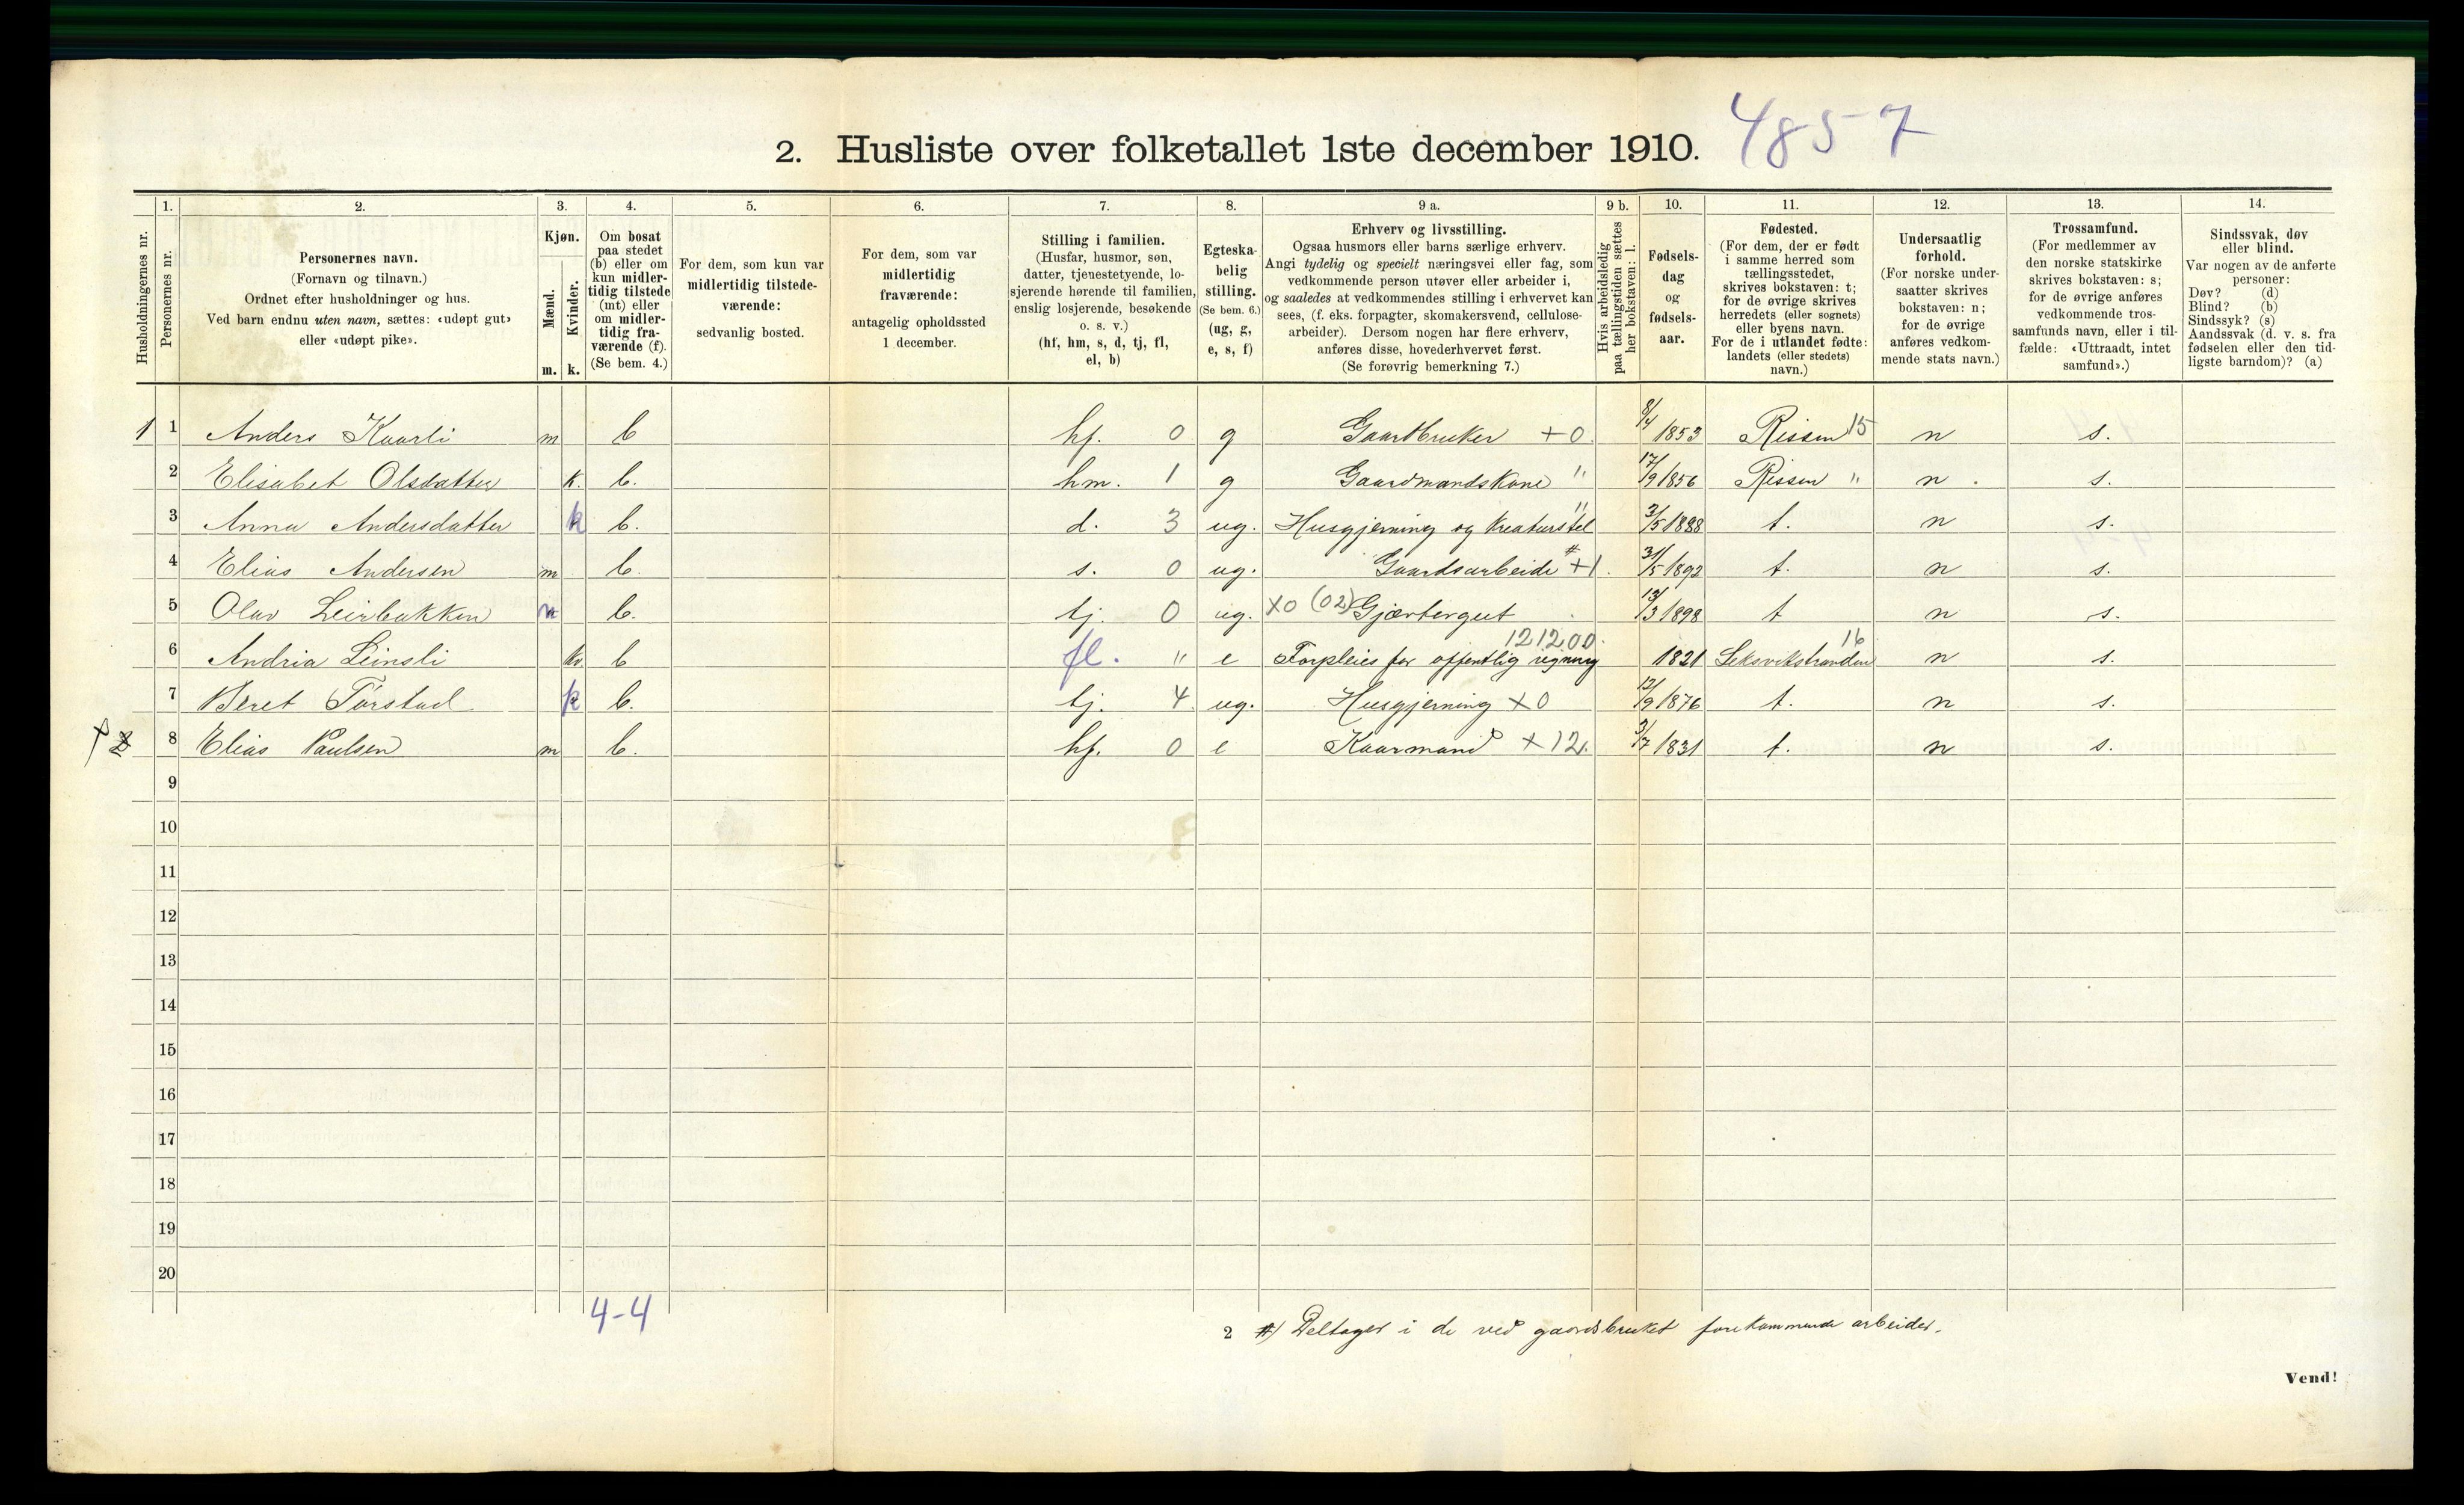 2. Husliste over folketallet 1ste december 1910. 4857
1. 2. 3. 4. 5. 6. 7. 8. 9 a. 9 b. 10. 11. 12. 13. 14.
Husholdningernes nr.
Personernes nr.
Personernes navn.
(Fornavn og tilnavn.)
Ordnet efter husholdninger og hus.
Ved barn endnu uten navn, sættes: «udøpt gut»
eller «udøpt pike».
Kjøn.
Mænd.
Kvinder.
m. k.
Om bosat
paa stedet
(b) eller om
kun midler-
tidig tilstede
(mt) eller
om midler-
tidig fra-
værende (f).
(Se bem. 4.)
For dem, som kun var
midlertidig tilstede-
værende:
sedvanlig bosted.
For dem, som var
midlertidig
fraværende:
antagelig opholdssted
1 december.
Stilling i familien.
(Husfar, husmor, søn,
datter, tjenestetyende, lo-
sjerende hørende til familien,
enslig losjerende, besøkende
o. s. v.)
(hf, hm, s, d, tj, fl,
el, b)
Egteska-
belig
stilling.
(Se bem. 6.)
(ug, g,
e, s, f)
Erhverv og livsstilling.
Ogsaa husmors eller barns særlige erhverv.
Angi tydelig og specielt næringsvei eller fag, som
vedkommende person utøver eller arbeider i,
og saaledes at vedkommendes stilling i erhvervet kan
sees, (f. eks. forpagter, skomakersvend, cellulose-
arbeider). Dersom nogen har flere erhverv,
anføres disse, hovederhvervet først.
(Se forøvrig bemerkning 7.)
Hvis arbeidsledig
paa tællingstiden sættes
her bokstaven: l.
Fødsels-
dag
og
fødsels-
aar.
Fødested.
(For dem, der er født
i samme herred som
tællingsstedet,
skrives bokstaven: t;
for de øvrige skrives
herredets (eller sognets)
eller byens navn.
For de i utlandet fødte:
landets (eller stedets)
navn.)
Undersaatlig
forhold.
(For norske under-
saatter skrives
bokstaven: n;
for de øvrige
anføres vedkom-
mende stats navn.)
Trossamfund.
(For medlemmer av
den norske statskirke
skrives bokstaven: s;
for de øvrige anføres
vedkommende tros-
samfunds navn, eller i til-
fælde: «Uttraadt, intet
samfund».)
Sindssvak, døv
eller blind.
Var nogen av de anførte
personer:
Døv? (d)
Blind? (b)
Sindssyk? (s)
Aandssvak (d. v. s. fra
fødselen eller den tid-
ligste barndom)? (a)
1 1 Anders Kaarli m b hf. 0 g Gaardbruker +0 8/4 1853 Rissen 15 n s.
2 Elisabet Olsdatter k. b. hm. 1 g Gaardmandskone " 17/9 1856 Rissen " n. s.
3 Anna Andersdatter k b. d. 3 ug. Husgjerning og kreaturstel " 3/5 1888 t. n s.
4 Elias Andersen m b. s. 0 ug. Gaardsarbeide # +1. 31/5 1892 t. n s.
5 Olav Leirbakken m b. tj. 0 ug. X0 (02) Gjætergut 13/3 1898 t n s.
6 Andria Leinsli k b fl. " e Forpleies for offentlig regning 121200. 1821 Leksvikstranden 16 n s.
7 Beret Tørstad k b. tj. 4 ug. Husgjerning X0 12/9 1876 t. n s.
8 Elias Paulsen m b. hf. 0 e Kaarmand +12. 3/7 1831 t. n s.
9
10
11
12
13
14
15
16
17
18
19
20
4-4
2 #) Deltager i de ved gaardsbruket forekommende arbeider.
Vend!